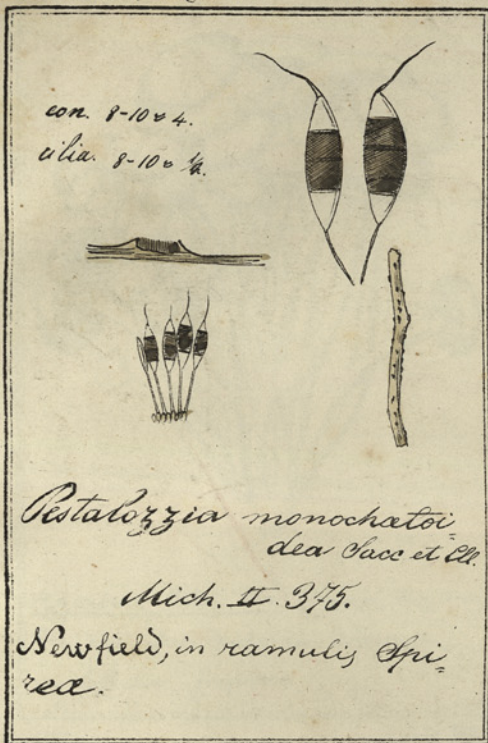 con. 8-10 ≈ 4.
cilia. 8-10 ≈ ½.
Pestalozzia monochætoi=
dea Sacc et Ell.
Mich. II. 375.
Newfield, in ramulis Spi=
reæ.